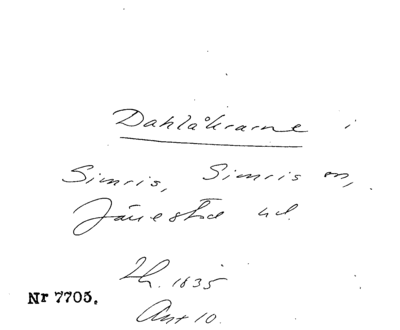 Dahlåkrarne i
Simris, Simris sn,
Järrestad hd.
Th. 1635
Ant 10.
Nr 7705.